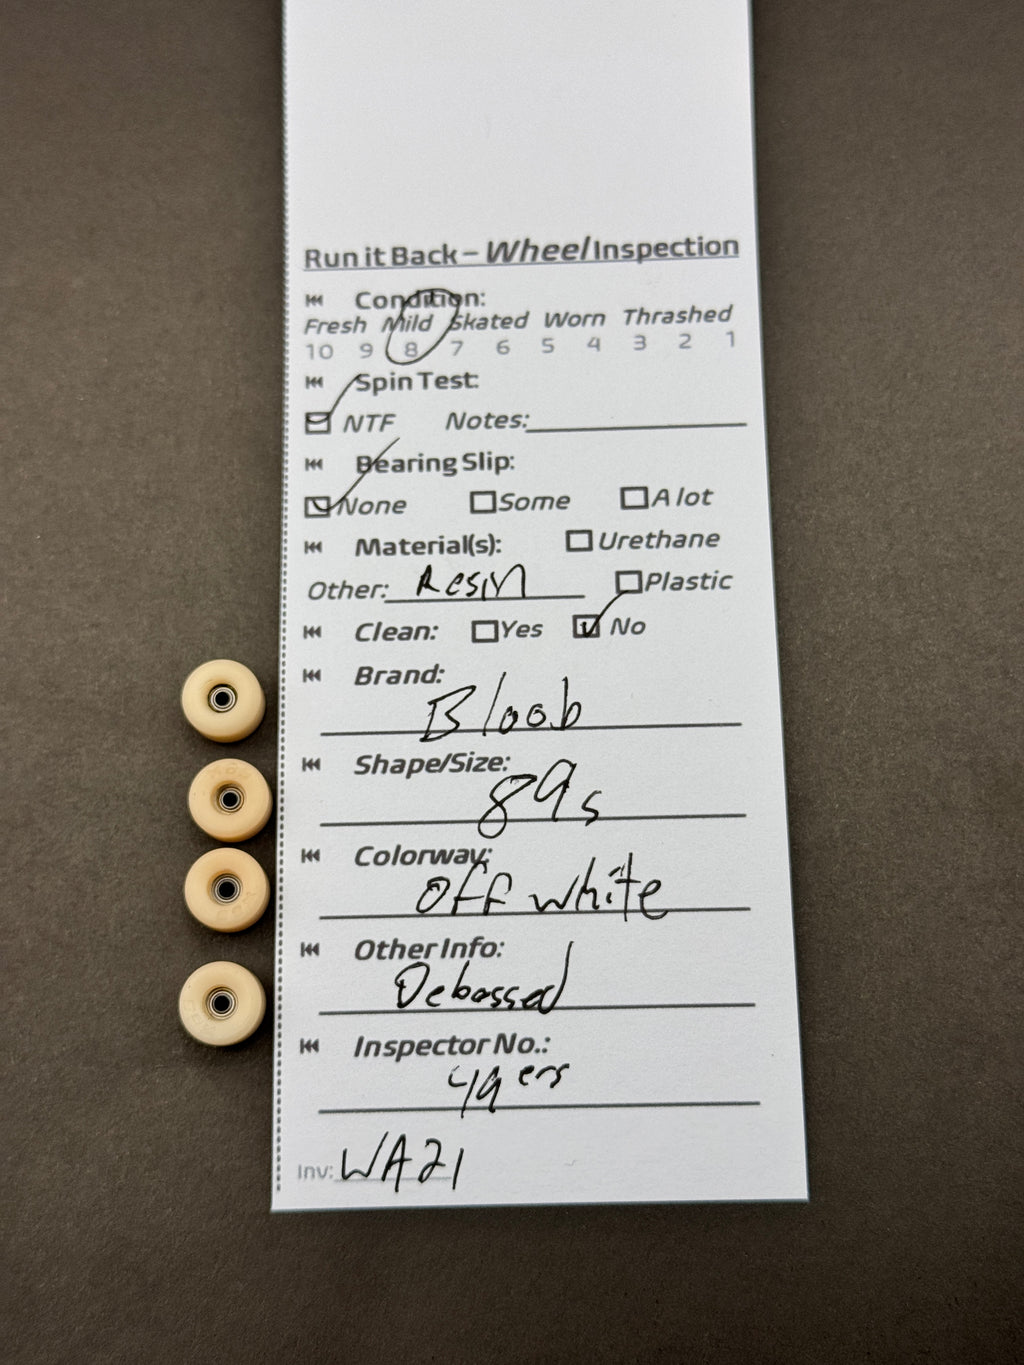 Run it Back – Wheel Inspection
Condition:
Fresh Mild Skated Worn Thrashed
10 9 8 7 6 5 4 3 2 1
Spin Test:
NTF Notes:
Bearing Slip:
None Some A lot
Material(s): Urethane
Other: Resin Plastic
Clean: Yes No
Brand:
Bloob
Shape/Size:
89s
Colorway:
Off white
Other Info:
Debossed
Inspector No.:
49ers
Inv: WA21